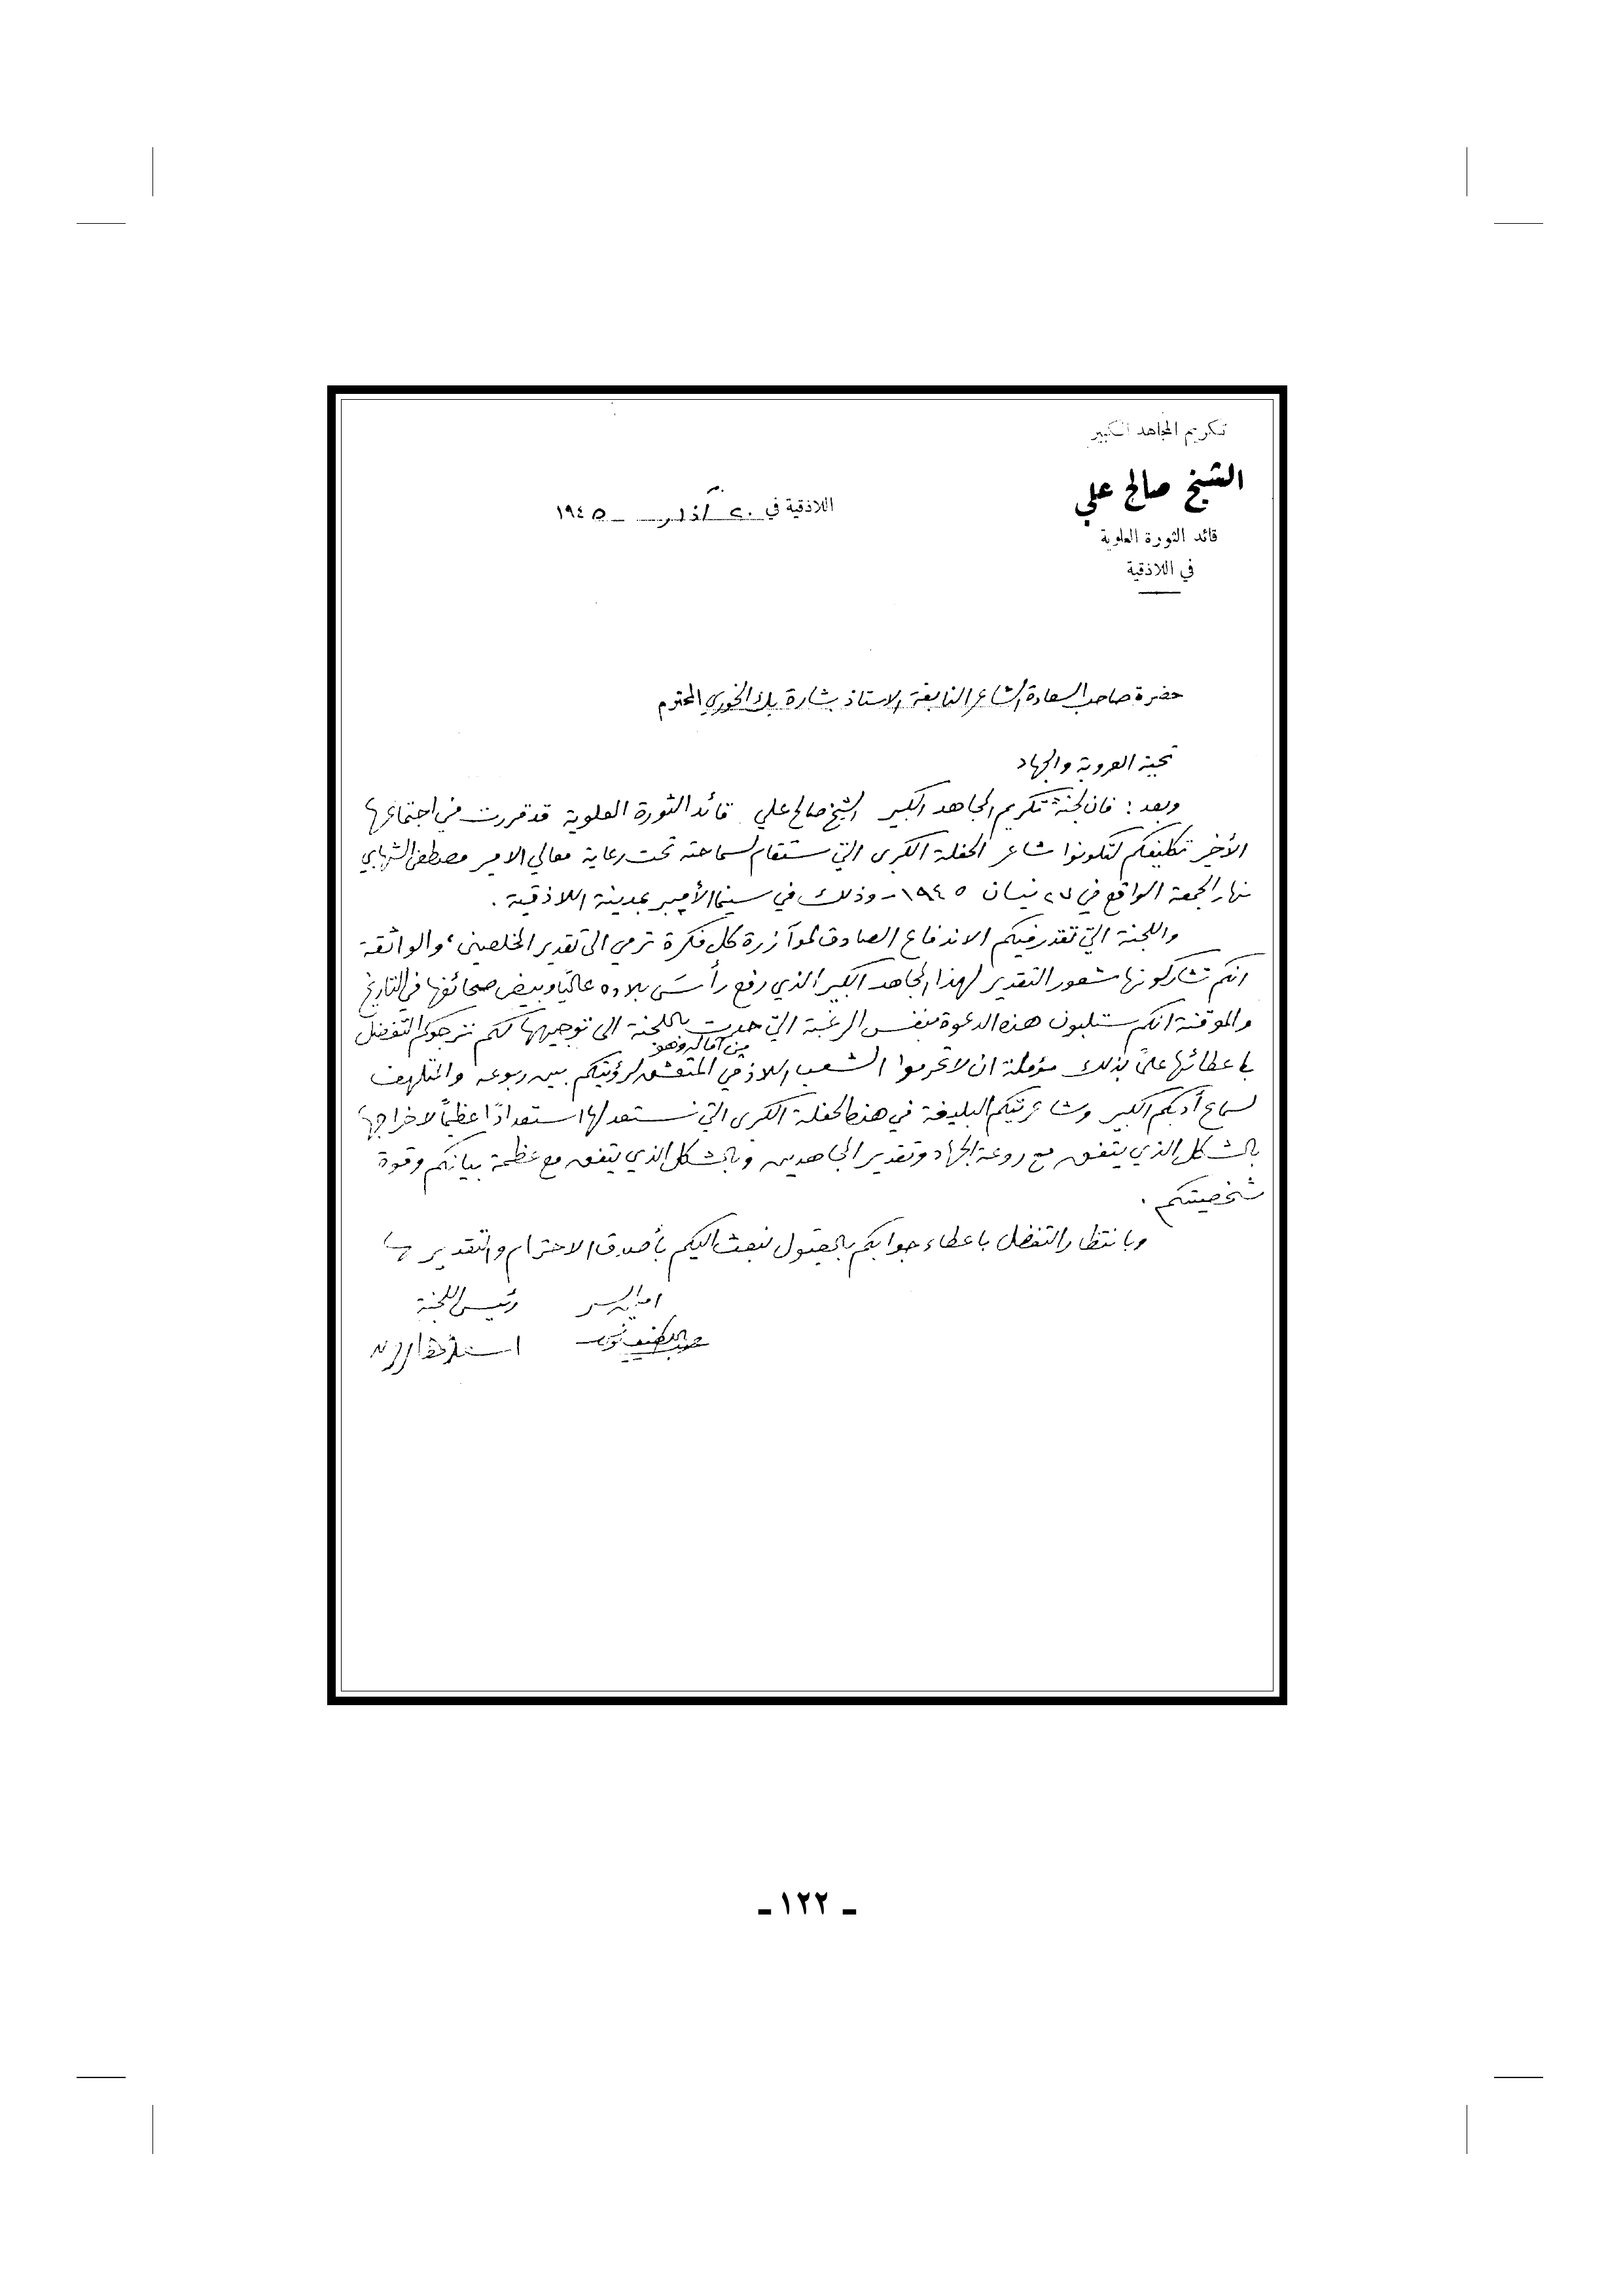 تكريم المجاهد الكبير
الشيخ صالح علي
قائد الثورة العلوية
في اللاذقية
اللاذقية في ٢٠ آذار ١٩٤٥
حضرة صاحب السعادة الشاعر النابغة الاستاذ بشارة بك الخوري المحترم
تحية العروبة والجهاد
وبعد : فان لجنة تكريم المجاهد الكبير الشيخ صالح علي قائد الثورة العلوية قد قررت في اجتماعها
الأخير تكليفكم لتكونوا شاعر الحفلة الكبرى التي ستقام لسماحته تحت رعاية معالي الامير مصطفى الشهابي
نهار الجمعة الواقع في ٢٧ نيسان ١٩٤٥ - وذلك في سينما الأمبير بمدينة اللاذقية .
واللجنة التي تقدر فيكم الاندفاع الصادق لمؤازرة كل فكرة ترمي الى تقدير المخلصين، والواثقة
انكم تشاركونها شعور التقدير لهذا المجاهد الكبير الذي رفع رأس بلاده عالياً وبيض صحائفها في التاريخ
والموقنة انكم ستلبون هذه الدعوة بنفس الرغبة التي حدت باللجنة الى توجيهها لكم ترجوكم التفضل
باعطائها علماً بذلك مؤملة ان لا تحرموا الشعب اللاذقي المتعشق لرؤيتكم بين ربوعه والمتلهف
لسماع أدبكم الكبير وشاعريتكم البليغة في هذه الحفلة الكبرى التي نستعد لها استعداداً عظيماً لاخراجها
بالشكل الذي يتفق مع روعة الجهاد وتقدير المجاهدين وبالشكل الذي يتفق مع عظمة بيانكم وقوة
شخصيتكم .
وبانتظار التفضل باعطاء جوابكم بالقبول نبعث اليكم بأصدق الاحترام والتقدير
امين السر رئيس اللجنة
ـ ١٢٢ ـ